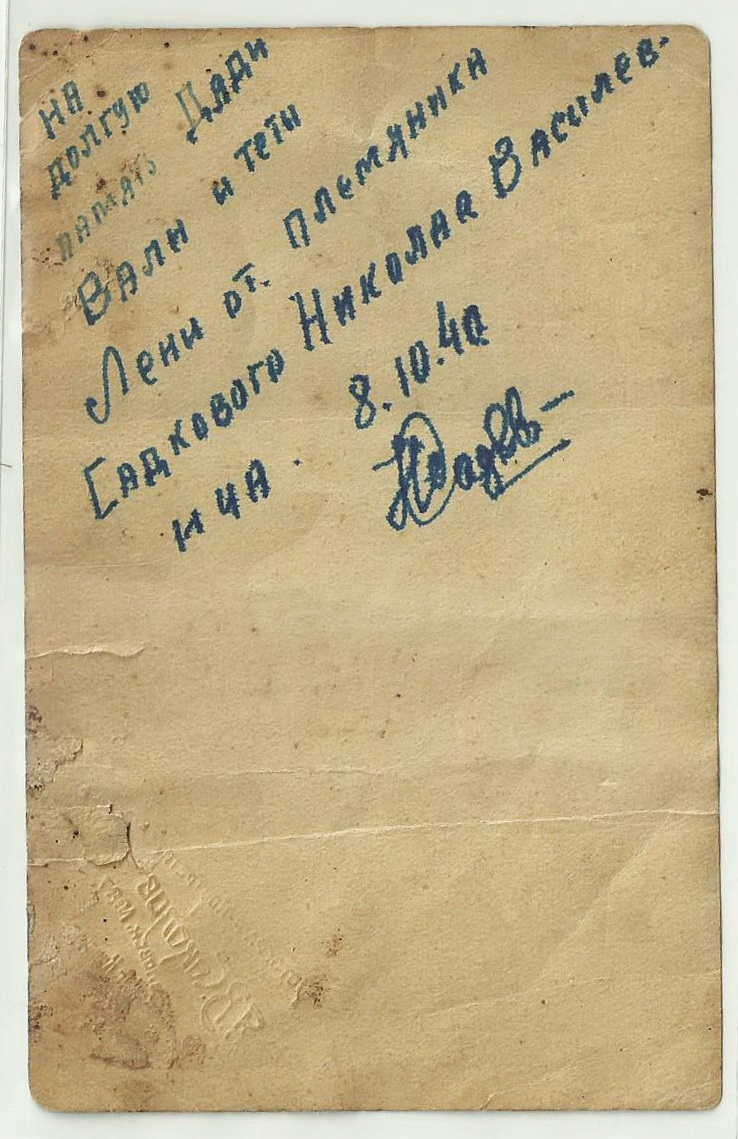 НА
ДОЛГУЮ
ПАМЯТЬ ДЯДИ
ВАЛИ И ТЕТИ
ЛЕНИ ОТ. ПЛЕМЯНИКА
САДКОВОГО НИКОЛАЯ ВАСИЛЕВ-
ИЧА.
8.10.40